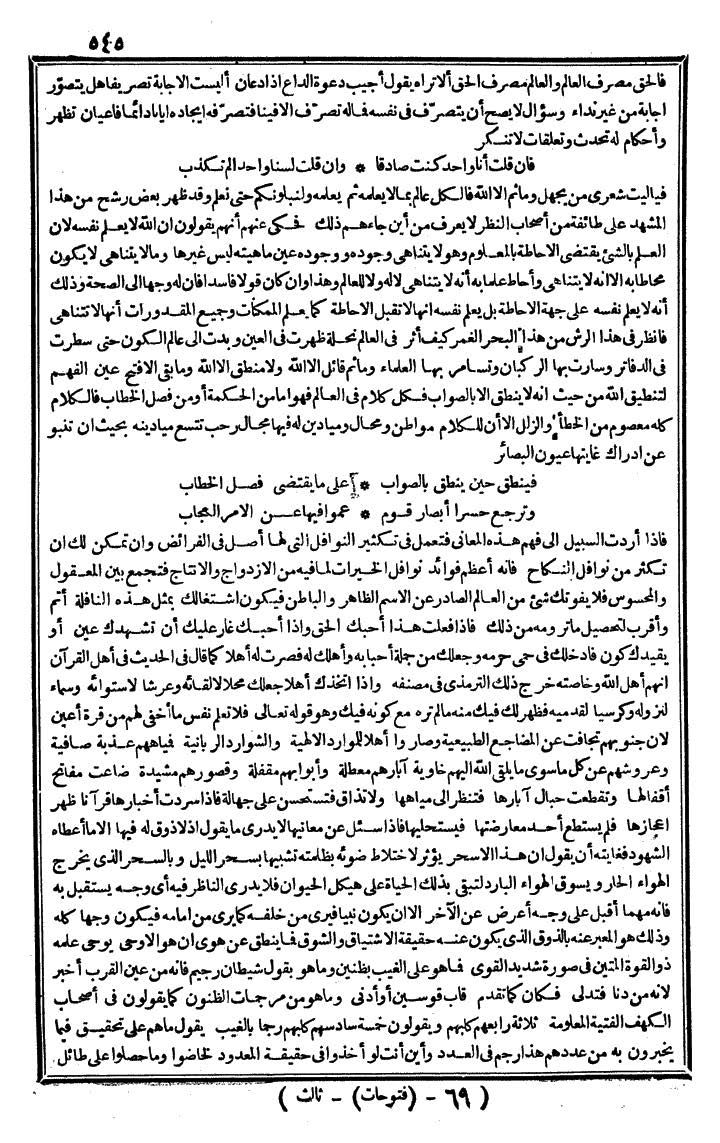 ٥٤٥
فالحق مصرف العالم والعالم مصرف الحق ألا تراه يقول أجيب دعوة الداع اذا دعان أليست الاجابة تصريفا هل يتصوّر
اجابة من غير نداء وسؤال لا يصح أن يتصرّف فى نفسه فما له تصرّف الا فينا فتصرّفه ايجاده ايانا دائما فاعيان تظهر
وأحكام له تحدث وتعلقات لا تنكر
فان قلت أنا واحد كنت صادقا * وان قلت لسنا واحدا لم تكذب
فيا ليت شعرى من يجهل وما ثم الا الله فالكل عالم بما لا يعلمه ثم يعلمه ولنبلونكم حتى نعلم وقد ظهر بعض رشح من هذا
المشهد على طائفة من أصحاب النظر لا يعرف من أين جاءهم ذلك فحكى عنهم أنهم يقولون ان الله لا يعلم نفسه لان
العلم بالشئ يقتضى الاحاطة بالمعلوم وهو لا يتناهى وجوده ووجوده عين ماهيته ليس غيرها وما لا يتناهى لا يكون
محاطا به الا انه لا يتناهى وأحاط علما به أنه لا يتناهى لا له ولا للعالم وهذا وان كان قولا فاسدا فان له وجها الى الصحة وذلك
أنه لا يعلم نفسه على جهة الاحاطة بل يعلم نفسه انها لا تقبل الاحاطة كما يعلم الممكنات وجميع المقدورات أنها لا تتناهى
فانظر فى هذا الرش من هذا البحر الغمر كيف أثر فى العالم نحلة ظهرت فى العين وبدت الى عالم الكون حتى سطرت
فى الدفاتر وسارت بها الركبان وتسامر بها العلماء وما ثم قائل الا الله ولا منطق الا الله وما بقى الا فتح عين الفهم
لتنطيق الله من حيث انه لا ينطق الا بالصواب فكل كلام فى العالم فهو اما من الحكمة أو من فصل الخطاب فالكلام
كله معصوم من الخطأ والزلل الا أن للكلام مواطن ومحال وميادين له فيها مجال رحب تتسع ميادينه بحيث ان تنبو
عن ادراك غايتها عيون البصائر
فينطق حين ينطق بالصواب * على ما يقتضى فصل الخطاب
وترجع حسرا أبصار قوم * عموا فيها عن الامر العجاب
فاذا أردت السبيل الى فهم هذه المعانى فتعمل فى تكثير النوافل التى لها أصل فى الفرائض وان تمكن لك ان
تكثر من نوافل النكاح فانه أعظم فوائد نوافل الخيرات لما فيه من الازدواج والانتاج فتجمع بين المعقول
والمحسوس فلا يفوتك شئ من العالم الصادر عن الاسم الظاهر والباطن فيكون اشتغالك بمثل هذه النافلة أتم
وأقرب لتحصيل ما ترومه من ذلك فاذا فعلت هذا أحبك الحق واذا أحبك غار عليك أن تشهدك عين أو
يقيدك كون فادخلك فى حمى حرمه وجعلك من جملة أحبابه وأهلك له فصرت له أهلا كما قال فى الحديث فى أهل القرآن
انهم أهل الله وخاصته خرج ذلك الترمذى فى مصنفه واذا اتخذك أهلا جعلك محلا لالقائه وعرشا لاستوائه وسماء
لنزوله وكرسيا لقدميه فظهر لك فيك منه ما لم تره مع كونه فيك وهو قوله تعالى فلا تعلم نفس ما أخفى لهم من قرة أعين
لان جنوبهم تتجافت عن المضاجع الطبيعية وصاروا أهلا للموارد الالهية والشوارد الربانية فياههم عذبة صافية
وعروشهم عن كل ما سوى ما يلقى الله اليهم خاوية آبارهم معطلة وأبوابهم مقفلة وقصورهم مشيدة ضاعت مفاتح
أقفالها وتقطعت حبال آبارها فتنظر الى مياهها ولا تذاق فتستحسن على جهالة فاذا سردت أخبارها قرآنا ظهر
اعجازها فلم يستطع أحد معارضتها فيستحليها فاذا سئل عن معانيها لا يدرى ما يقول اذ لا ذوق له فيها الا ما أعطاه
الشهود فغايته أن يقول ان هذا الا سحر يؤثر لاختلاط ضوئه بظلمته تشبيها بسحر الليل وبالسحر الذى يخرج
الهواء الحار ويسوق الهواء البارد لتبقى بذلك الحياة على هيكل الحيوان فلا يدرى الناظر فيه أى وجه يستقبل به
فانه مهما أقبل على وجه أعرض عن الآخر الا ان يكون نبيا فيرى من خلفه كما يرى من امامه فيكون وجها كله
وذلك هو المعبر عنه بالذوق الذى يكون عنه حقيقة الاشتياق والشوق فما ينطق عن هوى ان هو الا وحى يوحى علمه
ذو القوة المتين فى صورة شديد القوى فما هو على الغيب بظنين وما هو بقول شيطان رجيم فانه من عين القرب أخبر
لانه من دنا فتدلى فكان كما تقدم قاب قوسين أو أدنى وما هو من مرجمات الظنون كما يقولون فى أصحاب
الكهف الفتية المعلومة ثلاثة رابعهم كلبهم ويقولون خمسة سادسهم كلبهم رجما بالغيب يقول ما هم على تحقيق فيما
يخبرون به من عددهم هذا رجم فى العدد وأين أنت لو أخذوا فى حقيقة المعدود لخاضوا وما حصلوا على طائل
( ٦٩ - (فتوحات) - ثالث )